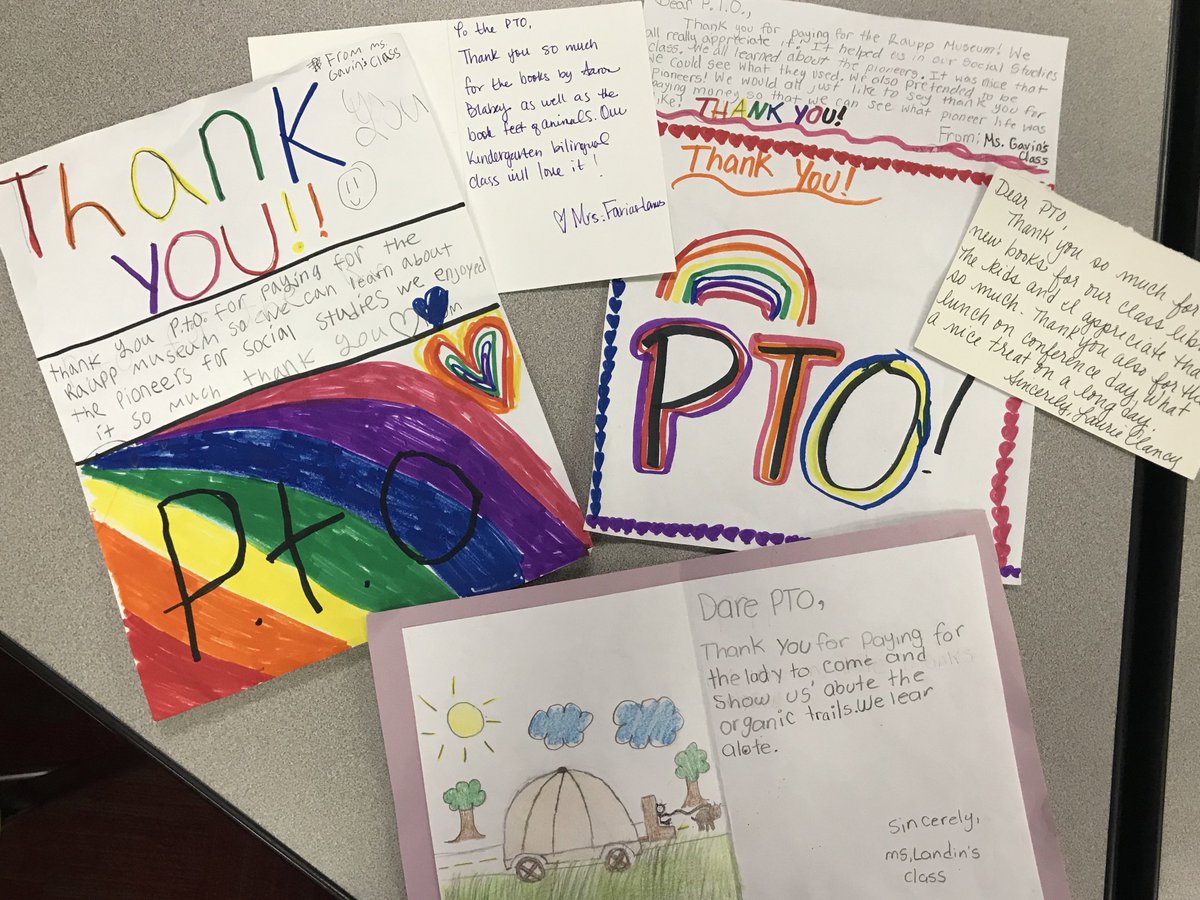 From ms.
Gavin's Class
Thank
you!!!
You
Thank you P.t.o. For paying for the
Raupp museum so we can learn about
the Pioneers for social studies we enjoyed
it so much thank you
P.t.O
To the PTO,
Thank you so much
for the books by Aaron
Blabey as well as the
book feet of animals. Our
Kindergarten bilingual
class will love it!
Mrs. Farias-
Dear P.T.O.,
Thank you for paying for the Raupp Museum! We
all really appreciate it! It helped us in our Social Studies
class. We all learned about the pioneers. It was nice that
we could see what they used. We also pretended to be
pioneers! We would all just like to say thank you for
paying money so that we can see what pioneer life was
like! THANK YOU!
From: Ms. Gavin's
Class
Thank You!
PTO!
Dear PTO,
Thank you so much for
new books for our class
The kids and I appreciate
so much. Thank you also for the
lunch on conference day. What
a nice treat on a long day.
Sincerely, Laurie Clancy
Dare PTO,
Thank you for paying for
the lady to come and
show us' abute the
organic trails. We lear
alote.
Sincerely,
ms, Landin's
class